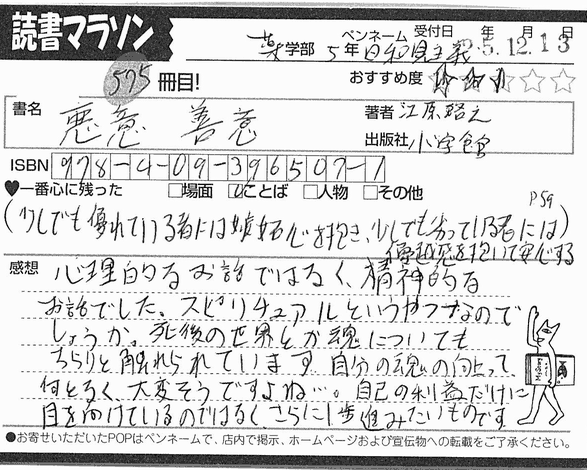 読書マラソン
薬学部 5年 ペンネーム 日和見主義 受付日 年 月 日 5.12.13
575冊目!
おすすめ度 ☆☆☆☆☆
書名 悪意 善意
著者 江原啓之
出版社 小学館
ISBN 978-4-09-396507-1
♥一番心に残った □場面 □ことば □人物 □その他
P59
(少しでも優れている者には嫉妬心を抱き、少しでも劣っている者には)
優越感を抱いて安心する
感想 心理的なお話ではなく、精神的な
お話でした。スピリチュアルというやつなので
しょうか。死後の世界とか魂についても
ちらりと触れられています。自分の魂の向上って、
何となく、大変そうですよね…。自己の利益だけに
目を向けているのではなく、さらに1歩進みたいものです
●お寄せいただいたPOPはペンネームで、店内で掲示、ホームページおよび宣伝物への転載をご了承ください。